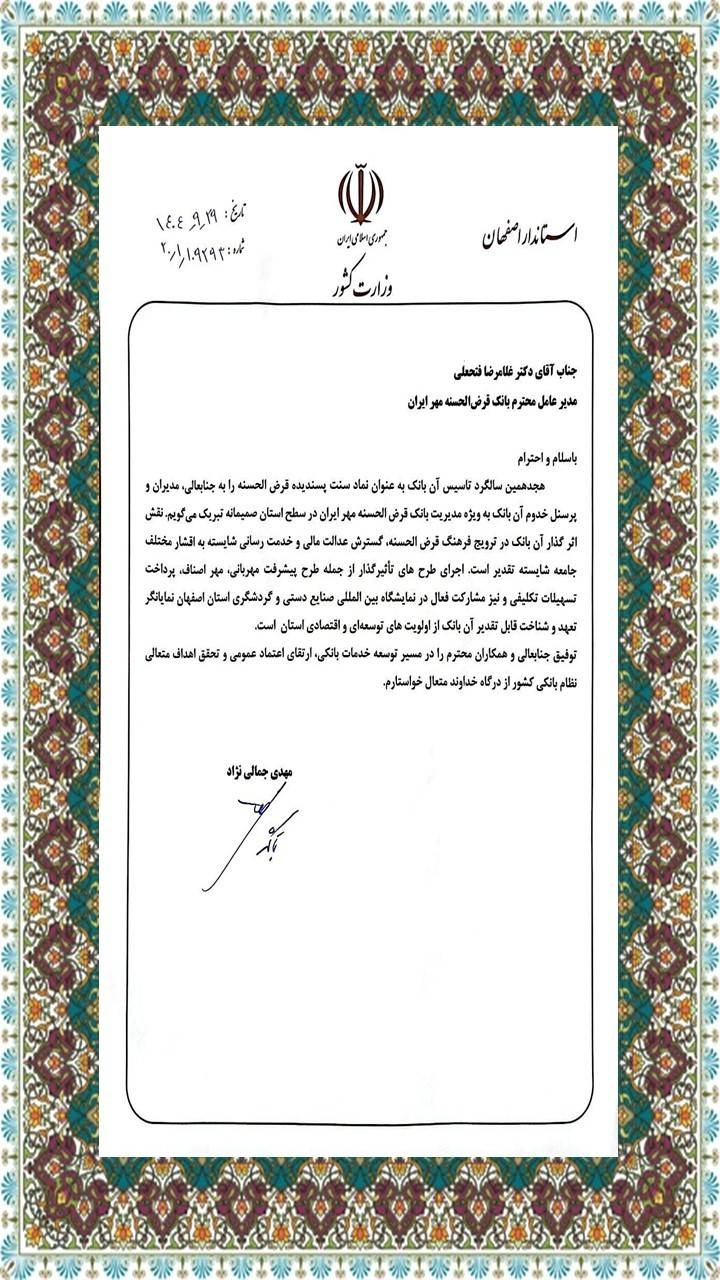 استاندار اصفهان
جمهوری اسلامی ایران
وزارت کشور
تاریخ: ۱۴۰۴_۹_۲۹
شماره: ۲۰/۱/۱۰۹۲۹۳
جناب آقای دکتر غلامرضا فتحعلی
مدیر عامل محترم بانک قرض‌الحسنه مهر ایران
باسلام و احترام
هجدهمین سالگرد تاسیس آن بانک به عنوان نماد سنت پسندیده قرض الحسنه را به جنابعالی، مدیران و
پرسنل خدوم آن بانک به ویژه مدیریت بانک قرض الحسنه مهر ایران در سطح استان صمیمانه تبریک می‌گویم. نقش
اثر گذار آن بانک در ترویج فرهنگ قرض الحسنه، گسترش عدالت مالی و خدمت رسانی شایسته به اقشار مختلف
جامعه شایسته تقدیر است. اجرای طرح های تأثیرگذار از جمله طرح پیشرفت مهربانی، مهر اصناف، پرداخت
تسهیلات تکلیفی و نیز مشارکت فعال در نمایشگاه بین المللی صنایع دستی و گردشگری استان اصفهان نمایانگر
تعهد و شناخت قابل تقدیر آن بانک از اولویت های توسعه‌ای و اقتصادی استان است.
توفیق جنابعالی و همکاران محترم را در مسیر توسعه خدمات بانکی، ارتقای اعتماد عمومی و تحقق اهداف متعالی
نظام بانکی کشور از درگاه خداوند متعال خواستارم.
مهدی جمالی نژاد